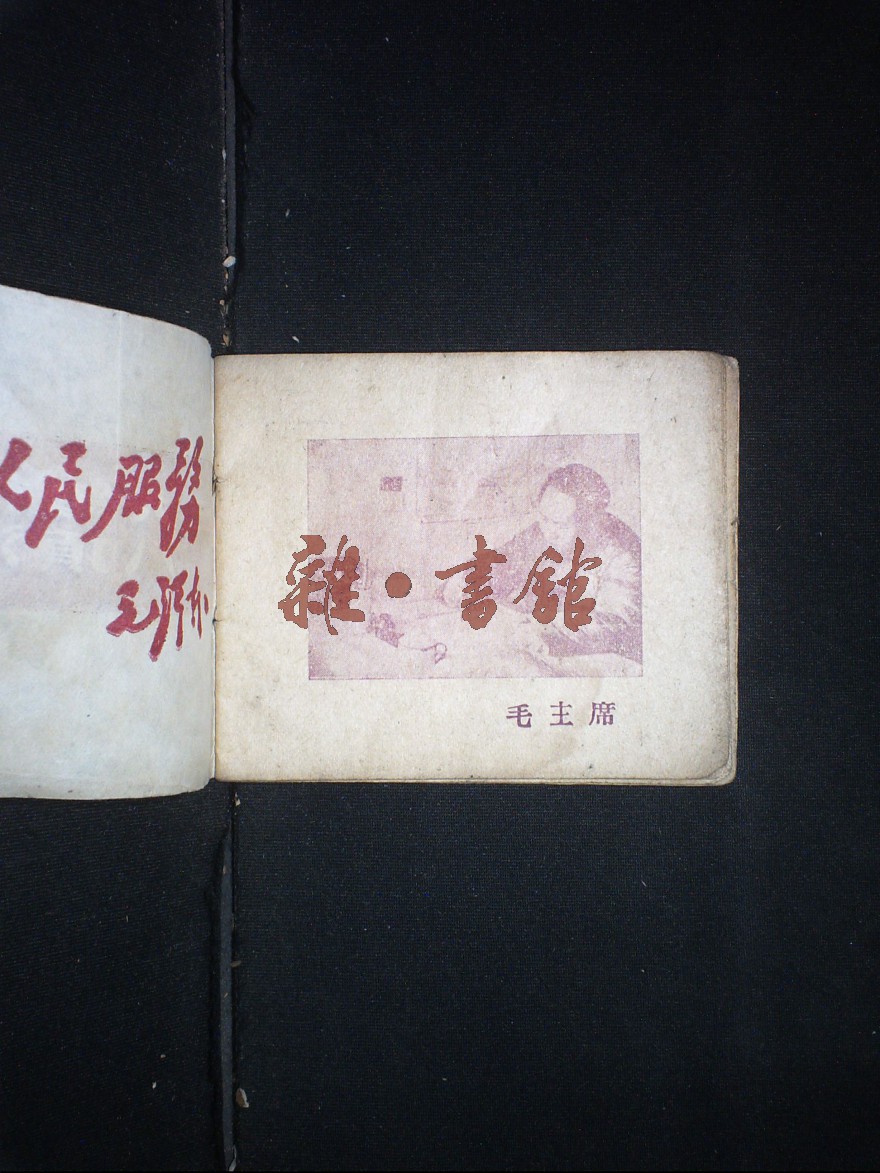 人民服務
毛澤东
雜·書館
毛主席